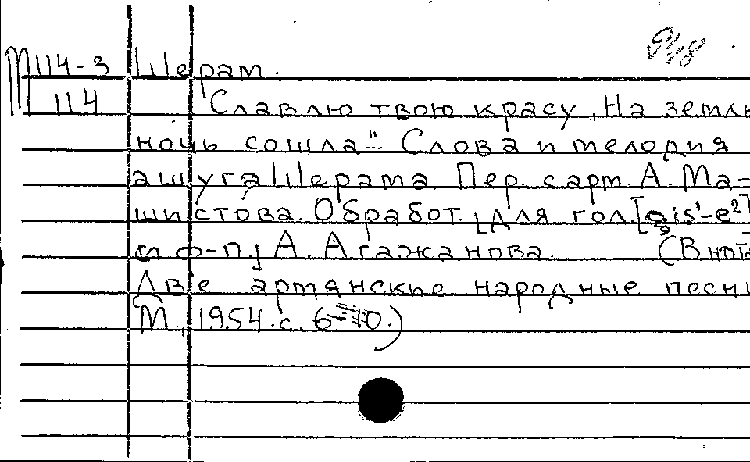 М114-3 Шерам.
114 Славлю твою красу, На землю
ночь сошла". Слова и мелодия
ашуга Шерама. Пер. с арм. А. Ма-
шистова. Обработ. [для гол. [gis¹-e²]
и ф-п.] А. Агажанова. (В нота
Две армянские народные песни
М., 1954. с. 6-10.)